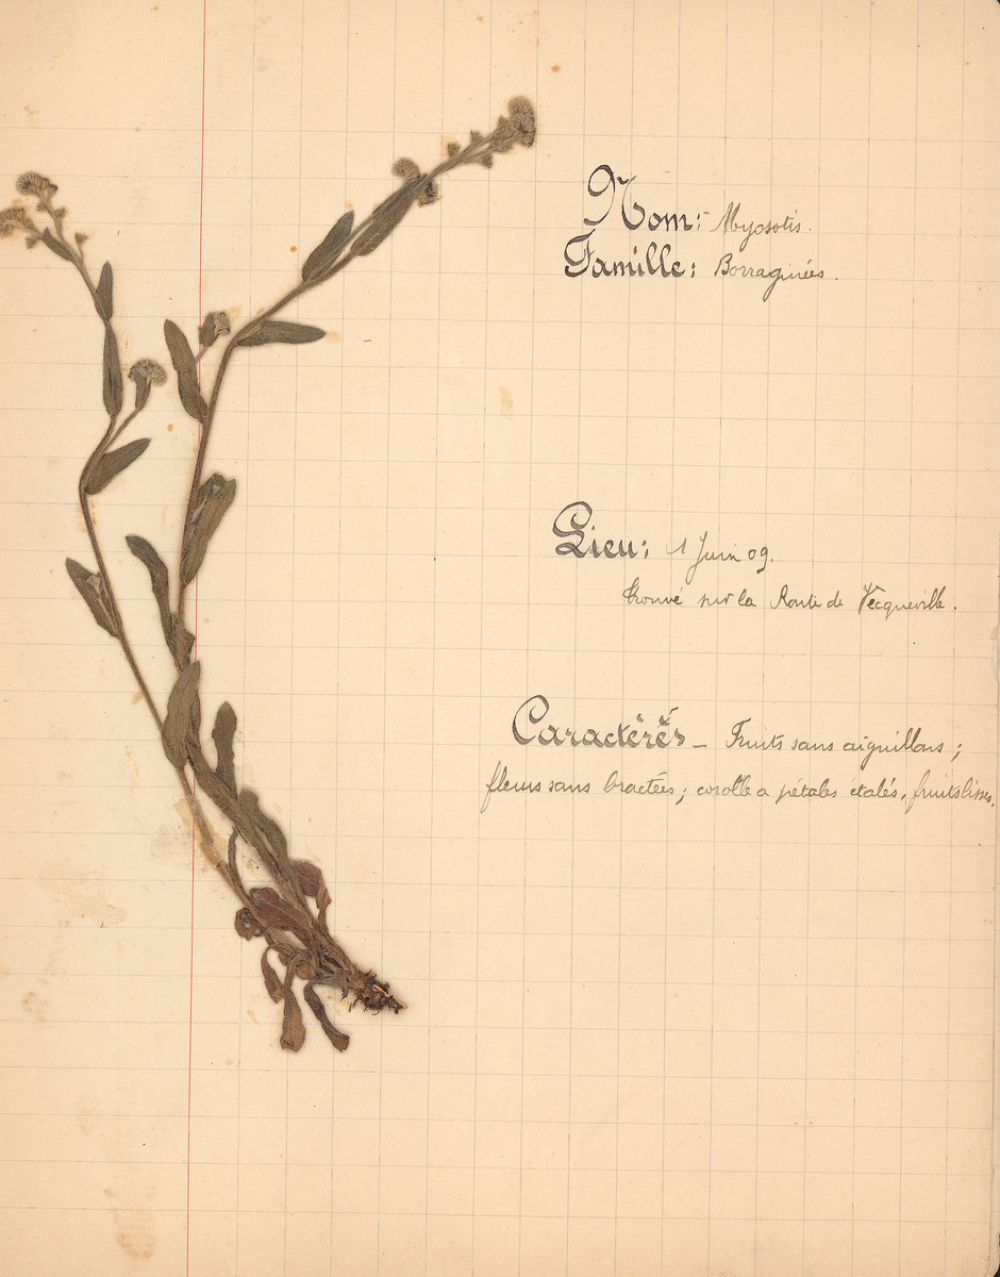 Nom: Myosotis.
Famille: Borraginées.
Lieu: 1 Juin 09.
trouvé sur la Route de Vecqueville.
Caractérés – Fruits sans aiguillons ;
fleurs sans bractées ; corolle a pétales étalés, fruits lisses.